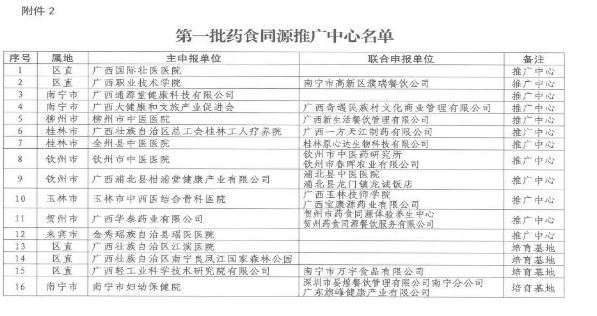 附件 2
第一批药食同源推广中心名单
序号 属地 主申报单位 联合申报单位 备注
1 区直 广西国际壮医医院 推广中心
2 区直 广西职业技术学院 南宁市高新区濮瑞餐饮公司 推广中心
3 南宁市 广西通源堂健康科技有限公司 推广中心
4 南宁市 广西大健康和文旅产业促进会 广西奇遇民族村文化商业管理有限公司 推广中心
5 柳州市 柳州市中医医院 广西新生活餐饮管理有限公司 推广中心
6 桂林市 广西壮族自治区总工会桂林工人疗养院 广西一方天江制药有限公司 推广中心
7 桂林市 全州县中医医院 桂林原心达生物科技有限公司 推广中心
8 钦州市 钦州市中医医院 钦州市中医药研究所
钦州市春晖农业有限公司 推广中心
9 钦州市 广西浦北县柑浦堂健康产业有限公司 浦北县中医医院
浦北县龙门镇龙诚饭店 推广中心
10 玉林市 玉林市中西医结合骨科医院 广西玉林技师学院
广西宝康源药业有限公司 推广中心
11 贺州市 广西华泰药业有限公司 贺州市药食同源体验养生中心
贺州药食同源餐饮服务有限公司 推广中心
12 来宾市 金秀瑶族自治县瑶医医院 推广中心
13 区直 广西壮族自治区江滨医院 培育基地
14 区直 广西壮族自治区南宁良凤江国家森林公园 培育基地
15 区直 广西轻工业科学技术研究院有限公司 南宁市万宇食品有限公司 培育基地
16 南宁市 南宁市妇幼保健院 深圳市晏煌餐饮管理有限公司南宁分公司
广东旗峰健康产业有限公司 培育基地